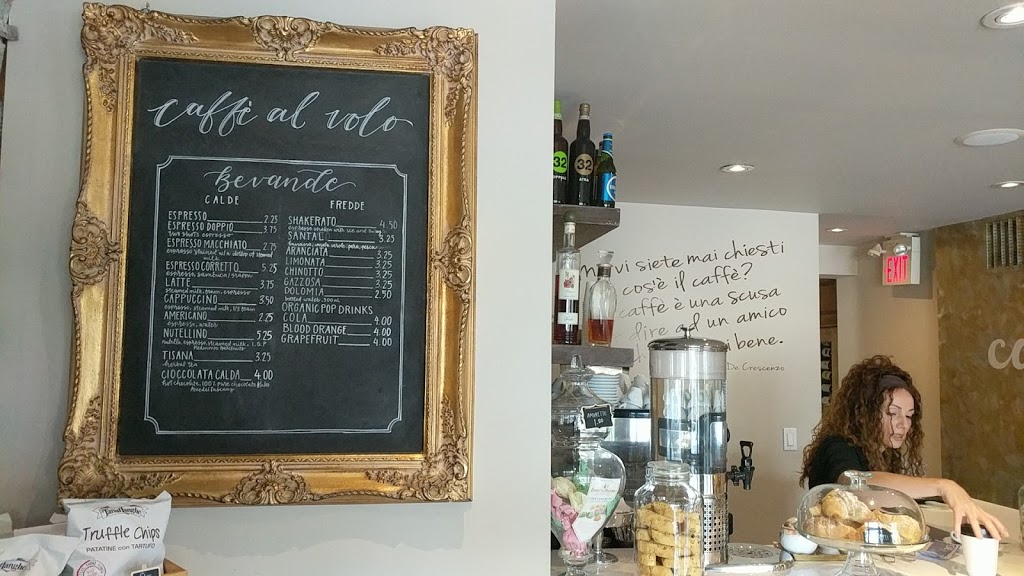 caffè al volo
Bevande
CALDE
ESPRESSO 2.25
ESPRESSO DOPPIO 3.75
two shots espresso
ESPRESSO MACCHIATO 2.75
espresso stained w/ a dollop of steamed milk
ESPRESSO CORRETTO 5.25
espresso, sambuca/grappa
LATTE 3.75
steamed milk, foam, espresso
CAPPUCCINO 3.50
espresso, steamed milk,
AMERICANO 2.25
espresso, water
NUTELLINO 5.25
nutella, espresso, steamed milk,
TISANA 3.25
herbal tea
CIOCCOLATA CALDA 4.00
hot chocolate, 100% pure chocolate flakes
Amedei Tuscany
FREDDE
SHAKERATO 4.50
espresso shaken with ice and
SANTAL 3.25
pera, pesca
ARANCIATA 3.25
LIMONATA 3.25
CHINOTTO 3.25
GAZZOSA 3.25
DOLOMIA 2.50
bottled water, 500mL
ORGANIC POP DRINKS
COLA 4.00
BLOOD ORANGE 4.00
GRAPEFRUIT 4.00
32
32
vi siete mai chiesti
cos'è il caffè?
caffè è una scusa
dire ad un amico
bene.
De Crescenzo
EXIT
ca
AMARETTI
Truffle Chips
PATATINE con TARTUFO